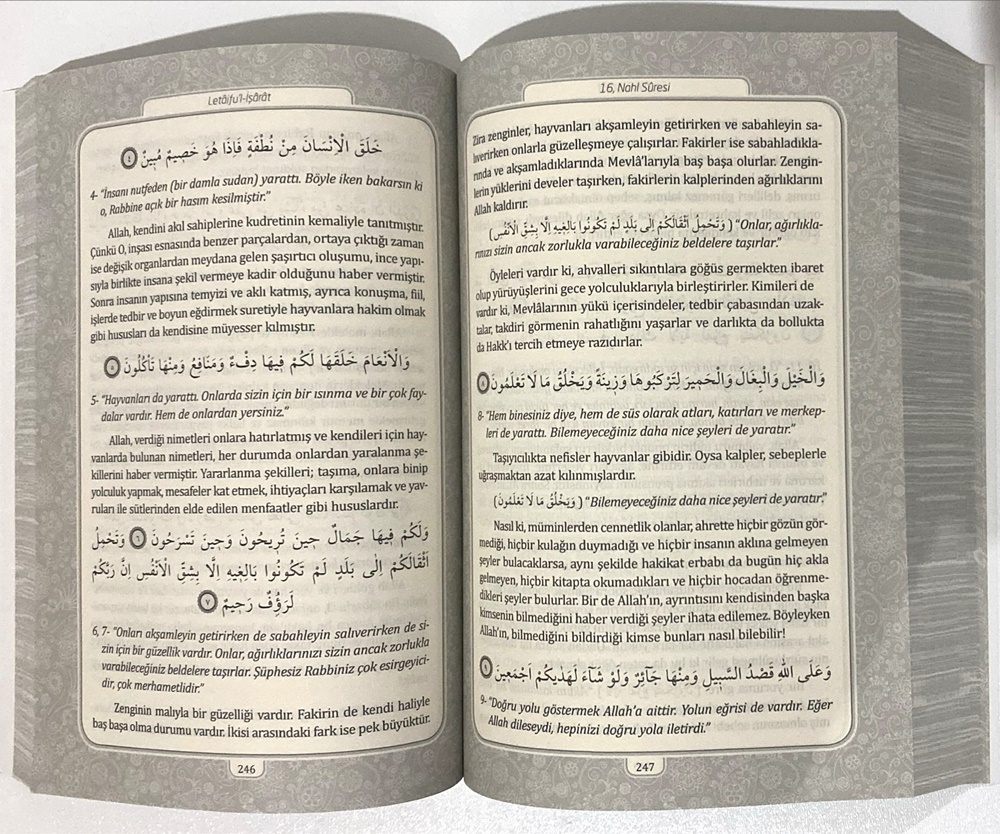 Letâifu'l-İşârât
خَلَقَ الْاِنْسَانَ مِنْ نُطْفَةٍ فَاِذَا هُوَ خَصٖيمٌ مُبٖينٌ ﴿٤﴾
4- "İnsanı nutfeden (bir damla sudan) yarattı. Böyle iken bakarsın ki
o, Rabbine açık bir hasım kesilmiştir."
Allah, kendini akıl sahiplerine kudretinin kemaliyle tanıtmıştır.
Çünkü O, inşası esnasında benzer parçalardan, ortaya çıktığı zaman
ise değişik organlardan meydana gelen şaşırtıcı oluşumu, ince yapı-
sıyla birlikte insana şekil vermeye kadir olduğunu haber vermiştir.
Sonra insanın yapısına temyizi ve aklı katmış, ayrıca konuşma, fiil,
işlerde tedbir ve boyun eğdirmek suretiyle hayvanlara hakim olmak
gibi hususları da kendisine müyesser kılmıştır.
وَالْاَنْعَامَ خَلَقَهَا لَكُمْ فٖيهَا دِفْءٌ وَمَنَافِعُ وَمِنْهَا تَاْكُلُونَ ﴿٥﴾
5- "Hayvanları da yarattı. Onlarda sizin için bir ısınma ve bir çok fay-
dalar vardır. Hem de onlardan yersiniz."
Allah, verdiği nimetleri onlara hatırlatmış ve kendileri için hay-
vanlarda bulunan nimetleri, her durumda onlardan yaralanma şe-
killerini haber vermiştir. Yararlanma şekilleri; taşıma, onlara binip
yolculuk yapmak, mesafeler kat etmek, ihtiyaçları karşılamak ve yav-
ruları ile sütlerinden elde edilen menfaatler gibi hususlardır.
وَلَكُمْ فٖيهَا جَمَالٌ حٖينَ تُرٖيحُونَ وَحٖينَ تَسْرَحُونَ ﴿٦﴾ وَتَحْمِلُ
اَثْقَالَكُمْ اِلٰى بَلَدٍ لَمْ تَكُونُوا بَالِغٖيهِ اِلَّا بِشِقِّ الْاَنْفُسِ اِنَّ رَبَّكُمْ
لَرَؤُفٌ رَحٖيمٌ ﴿٧﴾
6, 7- "Onları akşamleyin getirirken de sabahleyin salıverirken de si-
zin için bir güzellik vardır. Onlar, ağırlıklarınızı sizin ancak zorlukla
varabileceğiniz beldelere taşırlar. Şüphesiz Rabbiniz çok esirgeyici-
dir, çok merhametlidir."
Zenginin malıyla bir güzelliği vardır. Fakirin de kendi haliyle
baş başa olma durumu vardır. İkisi arasındaki fark ise pek büyüktür.
246
16, Nahl Sûresi
Zira zenginler, hayvanları akşamleyin getirirken ve sabahleyin sa-
lıverirken onlarla güzelleşmeye çalışırlar. Fakirler ise sabahladıkla-
rında ve akşamladıklarında Mevlâ'larıyla baş başa olurlar. Zengin-
lerin yüklerini develer taşırken, fakirlerin kalplerinden ağırlıklarını
Allah kaldırır.
(وَتَحْمِلُ اَثْقَالَكُمْ اِلٰى بَلَدٍ لَمْ تَكُونُوا بَالِغٖيهِ اِلَّا بِشِقِّ الْاَنْفُسِ) "Onlar, ağırlıkla-
rınızı sizin ancak zorlukla varabileceğiniz beldelere taşırlar."
Öyleleri vardır ki, ahvalleri sıkıntılara göğüs germekten ibaret
olup yürüyüşlerini gece yolculuklarıyla birleştirirler. Kimileri de
vardır ki, Mevlâlarının yükü içerisindeler, tedbir çabasından uzak-
talar, takdiri görmenin rahatlığını yaşarlar ve darlıkta da bollukta
da Hakk'ı tercih etmeye razıdırlar.
وَالْخَيْلَ وَالْبِغَالَ وَالْحَمٖيرَ لِتَرْكَبُوهَا وَزٖينَةً وَيَخْلُقُ مَا لَا تَعْلَمُونَ ﴿٨﴾
8- "Hem binesiniz diye, hem de süs olarak atları, katırları ve merkep-
leri de yarattı. Bilemeyeceğiniz daha nice şeyleri de yaratır."
Taşıyıcılıkta nefisler hayvanlar gibidir. Oysa kalpler, sebeplerle
uğraşmaktan azat kılınmışlardır.
(وَيَخْلُقُ مَا لَا تَعْلَمُونَ) "Bilemeyeceğiniz daha nice şeyleri de yaratır."
Nasıl ki, müminlerden cennetlik olanlar, ahrette hiçbir gözün gör-
mediği, hiçbir kulağın duymadığı ve hiçbir insanın aklına gelmeyen
şeyler bulacaklarsa, aynı şekilde hakikat erbabı da bugün hiç akla
gelmeyen, hiçbir kitapta okumadıkları ve hiçbir hocadan öğrenme-
dikleri şeyler bulurlar. Bir de Allah'ın, ayrıntısını kendisinden başka
kimsenin bilmediğini haber verdiği şeyler ihata edilemez. Böyleyken
Allah'ın, bilmediğini bildirdiği kimse bunları nasıl bilebilir!
وَعَلَى اللّٰهِ قَصْدُ السَّبٖيلِ وَمِنْهَا جَٓائِرٌ وَلَوْ شَٓاءَ لَهَدٰيكُمْ اَجْمَعٖينَ ﴿٩﴾
9- "Doğru yolu göstermek Allah'a aittir. Yolun eğrisi de vardır. Eğer
Allah dileseydi, hepinizi doğru yola iletirdi."
247